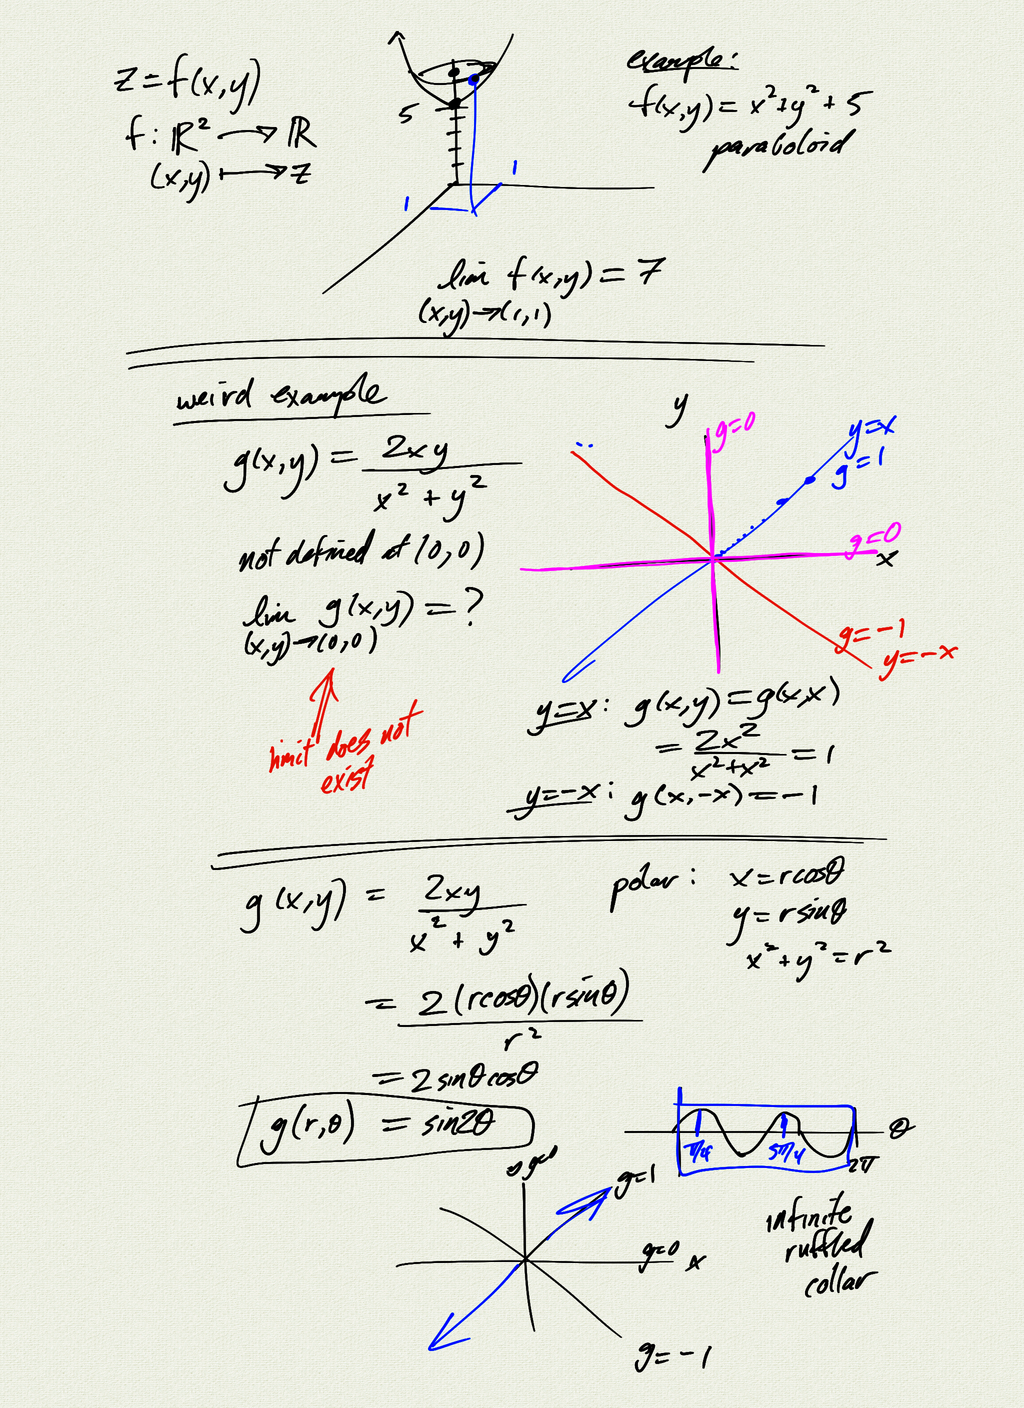 z = f(x,y)
f : ℝ² → ℝ
(x,y) ↦ z
5
1
1
example:
f(x,y) = x² + y² + 5
paraboloid
lim f(x,y) = 7
(x,y)→(1,1)
weird example
g(x,y) = 2xy / x² + y²
not defined at (0,0)
lim g(x,y) = ?
(x,y)→(0,0)
limit does not
exist
y
g=0
y=x
g=1
g=0
x
g=-1
y=-x
y=x: g(x,y) = g(x,x)
= 2x² / x²+x² = 1
y=-x: g(x,-x) = -1
g(x,y) = 2xy / x² + y²
polar: x = rcosθ
y = rsinθ
x² + y² = r²
= 2(rcosθ)(rsinθ) / r²
= 2sinθcosθ
g(r,θ) = sin2θ
π/4
5π/4
2π
θ
g=0
g=1
g=0
x
g=-1
infinite
ruffled
collar